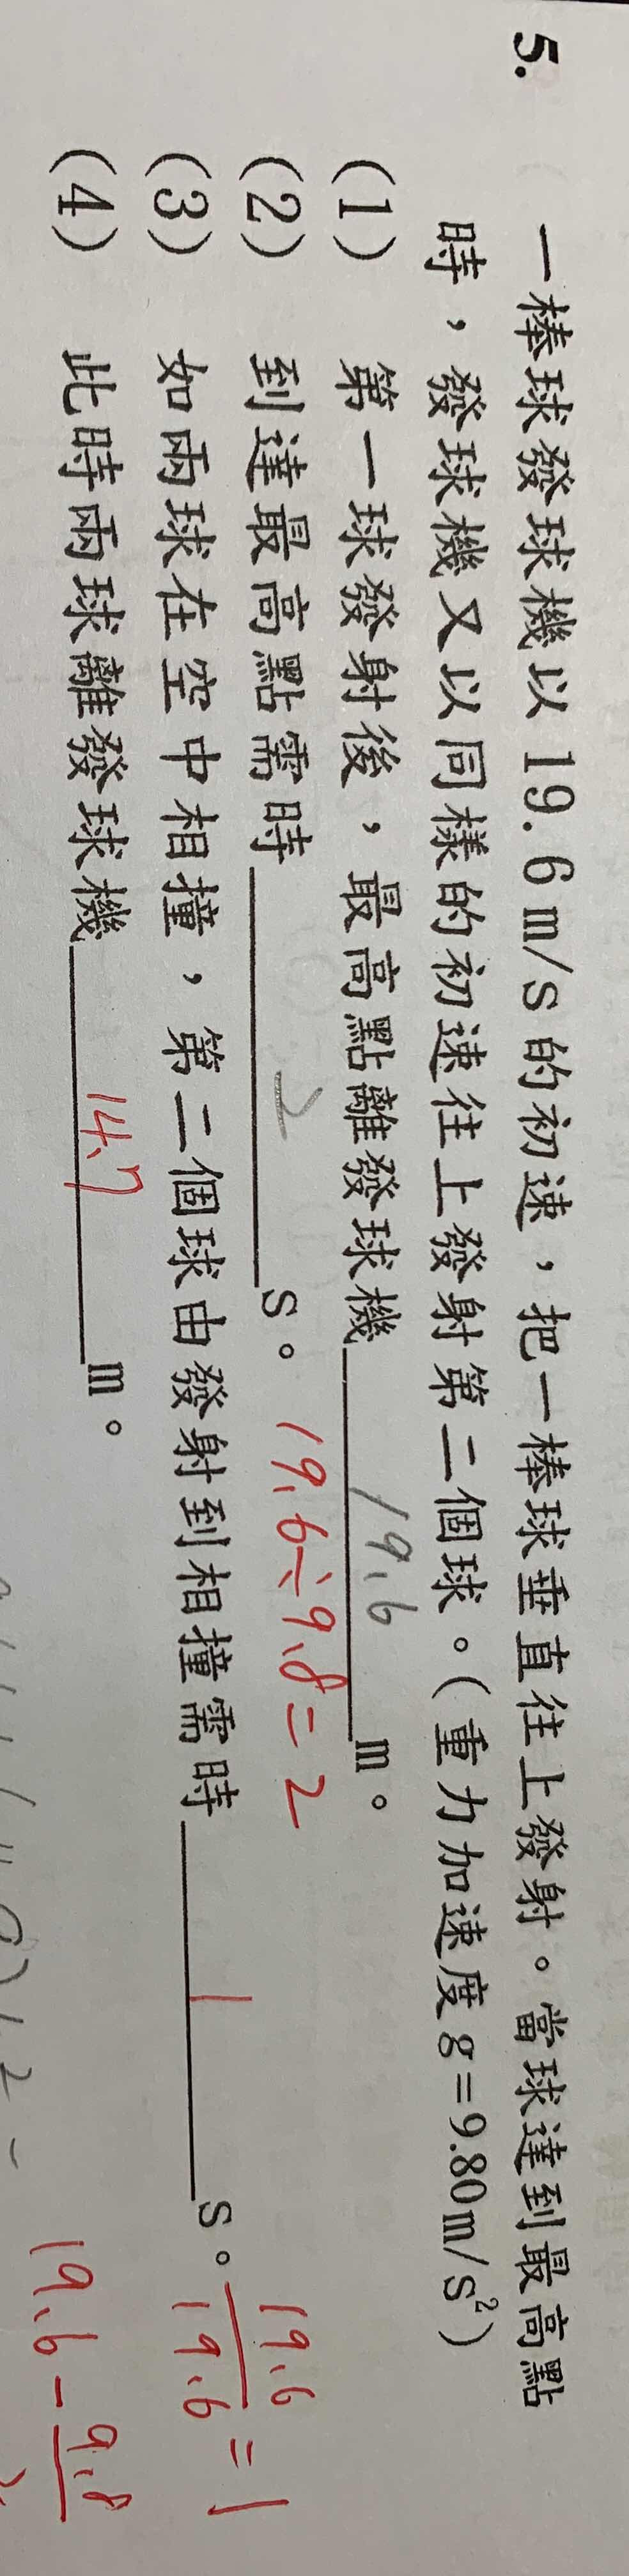 5. 一棒球發球機以 19.6 m/s 的初速，把一棒球垂直往上發射。當球達到最高點
時，發球機又以同樣的初速往上發射第二個球。(重力加速度 g=9.80m/s²)
(1) 第一球發射後，最高點離發球機 19.6 m。
(2) 到達最高點需時 2 s。 19.6÷9.8=2
(3) 如兩球在空中相撞，第二個球由發射到相撞需時 1 s。 19.6/19.6=1
(4) 此時兩球離發球機 14.7 m。
19.6-9.8